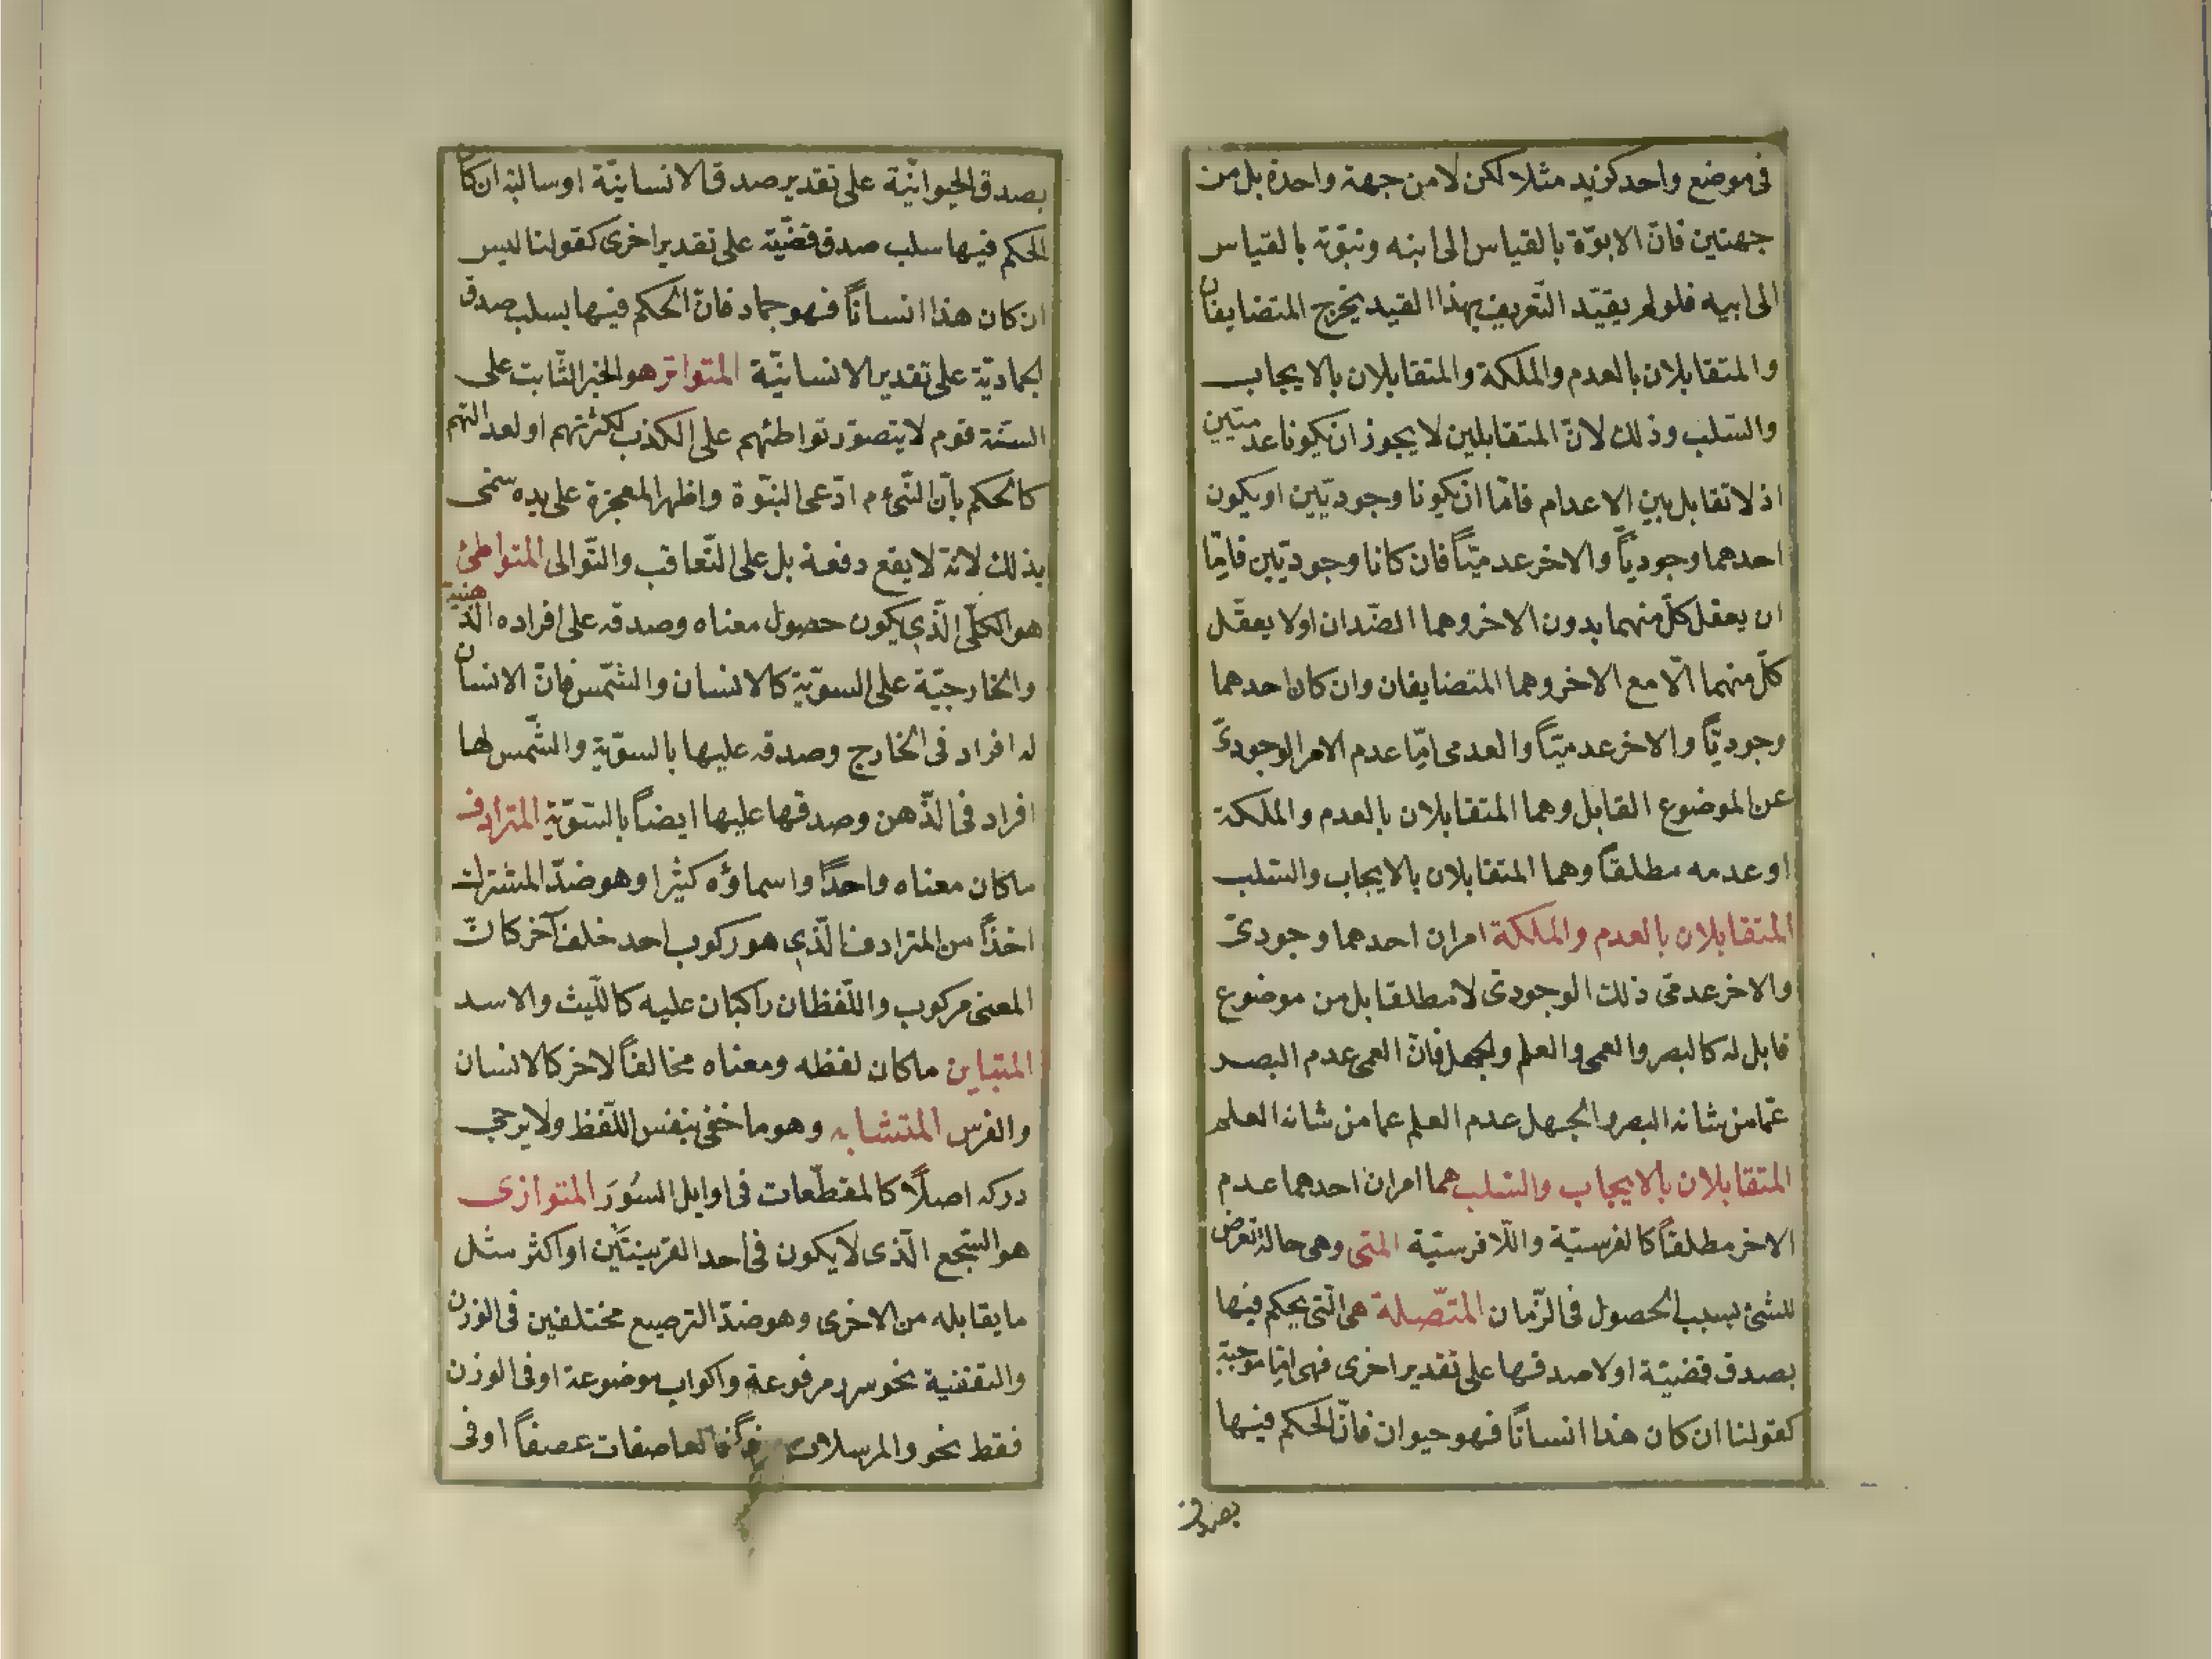 فى موضع واحد كزيد مثلا لكن لا من جهة واحدة بل من
جهتين فانّ الابوّة بالقياس الى ابنه وبنوّته بالقياس
الى ابيه فلو لم يقيّد التّعريف بهذا القيد يخرج المتضايفان
والمتقابلان بالعدم والملكة والمتقابلان بالايجاب
والسّلب وذلك لانّ المتقابلين لا يجوز ان يكونا عدميّين
اذ لا تقابل بين الاعدام فامّا ان يكونا وجوديّين او يكون
احدهما وجوديّاً والاخر عدميّاً فان كانا وجوديّين فامّا
ان يعقل كلّ منهما بدون الاخر وهما الضّدان اولا يعقل
كلّ منهما الّا مع الاخر وهما المتضايفان وان كان احدهما
وجوديّاً والاخر عدميّاً والعدمى امّا عدم الامر الوجودىّ
عن الموضوع القابل وهما المتقابلان بالعدم والملكة
او عدمه مطلقاً وهما المتقابلان بالايجاب والسّلب
المتقابلان بالعدم والملكة امران احدهما وجودىّ
والاخر عدمىّ ذلك الوجودىّ لا مطلقا بل من موضوع
قابل له كالبصر والعمى والعلم والجهل فانّ العمى عدم البصر
عمّا من شانه البصر والجهل عدم العلم عما من شانه العلم
المتقابلان بالايجاب والسّلب هما امران احدهما عدم
الاخر مطلقاً كالفرسيّة واللّافرسيّة المتى وهى حالة تعرض
للشئ بسبب الحصول فى الزّمان المتّصلة هى الّتى يحكم فيها
بصدق قضيّة اولا صدقها على تقدير اخرى فهى امّا موجبة
كقولنا ان كان هذا انسانًا فهو حيوان فانّ الحكم فيها
بصدق
بصدق الحيوانيّة على تقدير صدق الانسانيّة او سالبة ان كان
الحكم فيها سلب صدق قضيّة على تقدير اخرى كقولنا ليس
ان كان هذا انسانًا فهو جماد فانّ الحكم فيها بسلب صدق
الجماديّة على تقدير الانسانيّة المتواتر هو الخبر الثّابت على
السنة قوم لا يتصوّر تواطئهم على الكذب لكثرتهم او لعدالتهم
كالحكم بانّ النّبىّ م ادّعى النبوّة واظهر المعجزة على يده سمى
بذلك لانّه لا يقع دفعة بل على التّعاقب والتّوالى المتواطئ
هو الكلّى الّذى يكون حصول معناه وصدقه على افراده الذّهنيّة
والخارجيّة على السويّة كالانسان والشّمس فانّ الانسان
له افراد فى الخارج وصدقه عليها بالسويّة والشّمس لها
افراد فى الذّهن وصدقها عليها ايضاً بالسّويّة المترادف
ما كان معناه واحدًا واسماؤه كثيرا وهو ضدّ المشترك
اخذًا من المترادف الّذى هو ركوب احد خلف آخر كانّ
المعنى مركوب واللّفظان راكبان عليه كاللّيث والاسد
المتباين ما كان لفظه ومعناه مخالفاً لاخر كالانسان
والفرس المتشابه وهو ما خفى بنفس اللّفظ ولا يرجى
دركه اصلاً كالمقطّعات فى اوايل السُوَر المتوازى
هو السّجع الّذى لا يكون فى احد القرينتَين او اكثر مثل
ما يقابله من الاخرى وهو ضدّ الترصيع مختلفين فى الوزن
والتقفية نحو سرر مرفوعة واكواب موضوعة او فى الوزن
فقط نحو والمرسلات عرفاً فالعاصفات عصفاً او فى